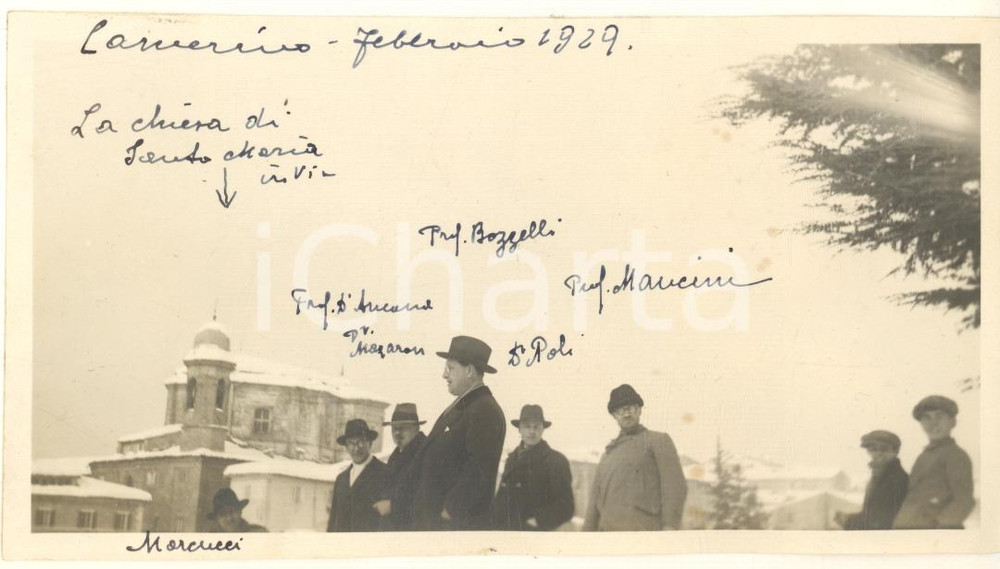 Camerino - Febbraio 1929.
La chiesa di
Santa Maria
in Via
Prof. Bozzelli
Prof. Mancini
Prof. D'Ancona
Mazaron
Dr Poli
Marcucci
iCharta